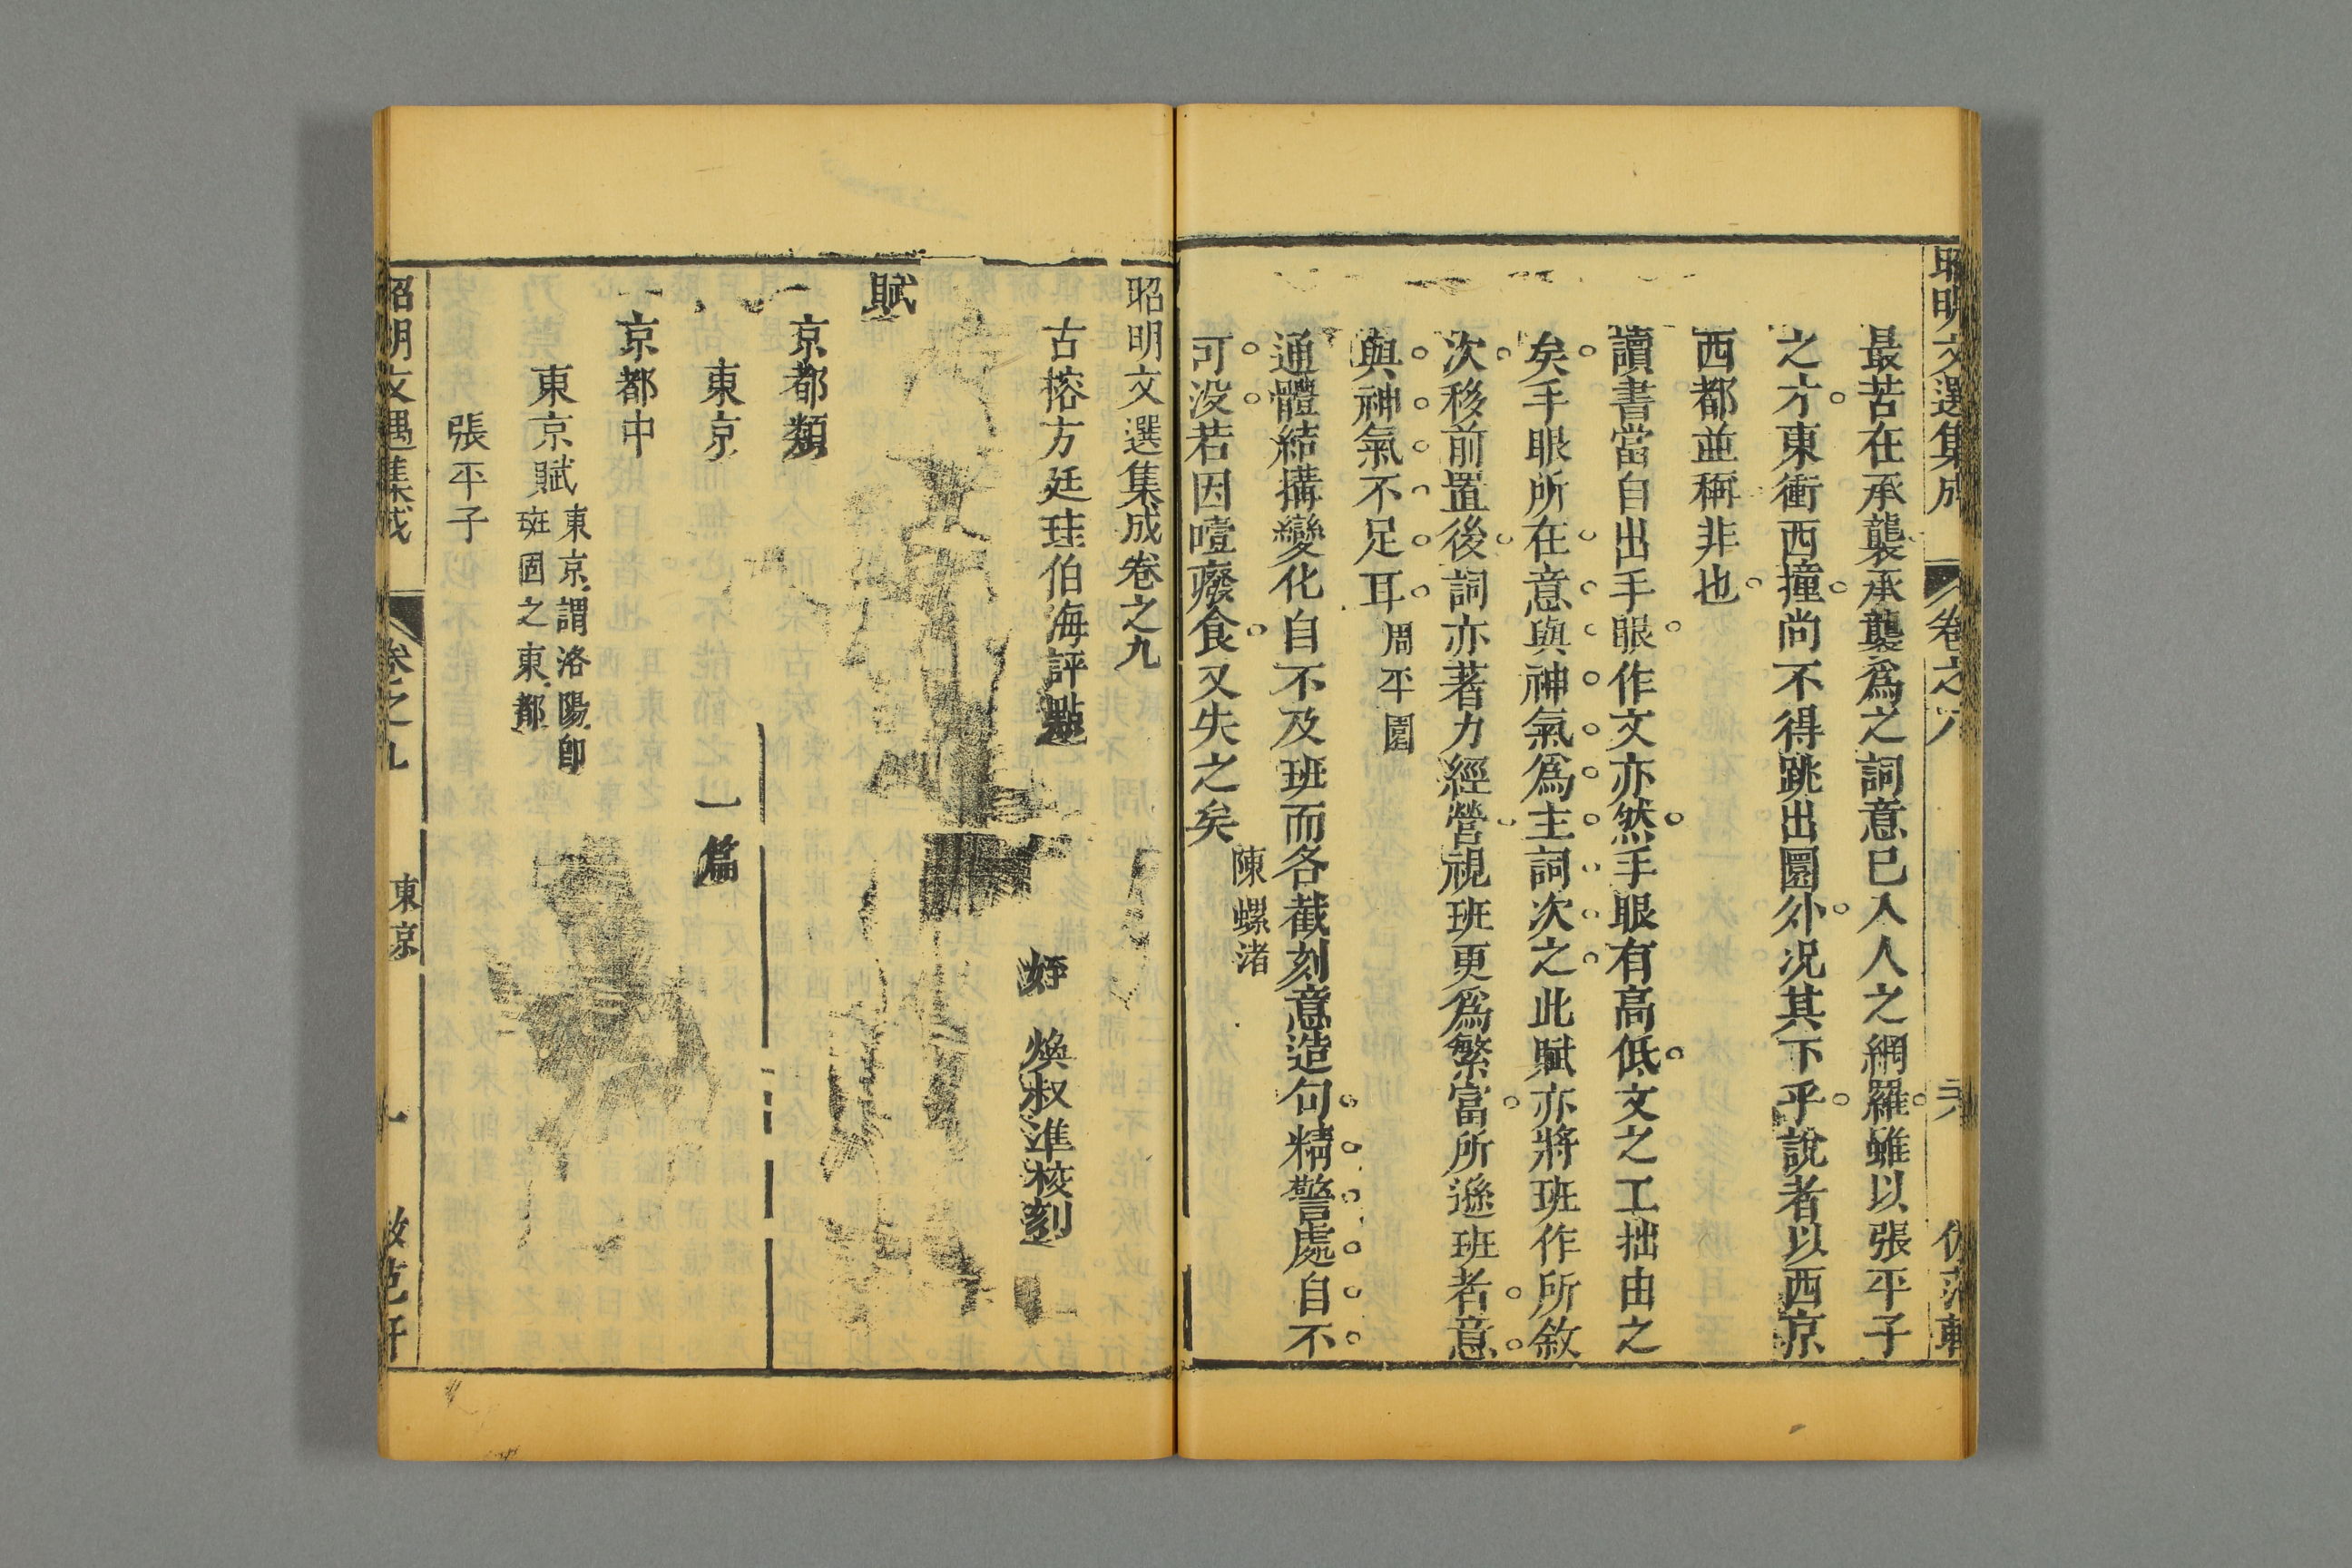 昭明文選集成
卷之八
最苦在承襲承襲爲之詞意已入人之網羅雖以張平子
之才東衝西撞尚不得跳出圜外况其下乎說者以西京
西都並稱非也
讀書當自出手眼作文亦然手眼有高低文之工拙由之
矣手眼所在意與神氣爲主詞次之此賦亦將班作所敘
次移前置後詞亦著力經營視班更爲繁富所遜班者意
與神氣不足耳周平園
通體結搆變化自不及班而各截刻意造句精警處自不
可没若因噎癈食又失之矣陳螺渚
昭明文選集成卷之九
古榕方廷珪伯海評點
煥叔準校刻
賦
京都類
東京
一篇
京都中
東京賦東京謂洛陽卽班固之東都
張平子
昭明文選集成
卷之九
東京
一
倣范軒